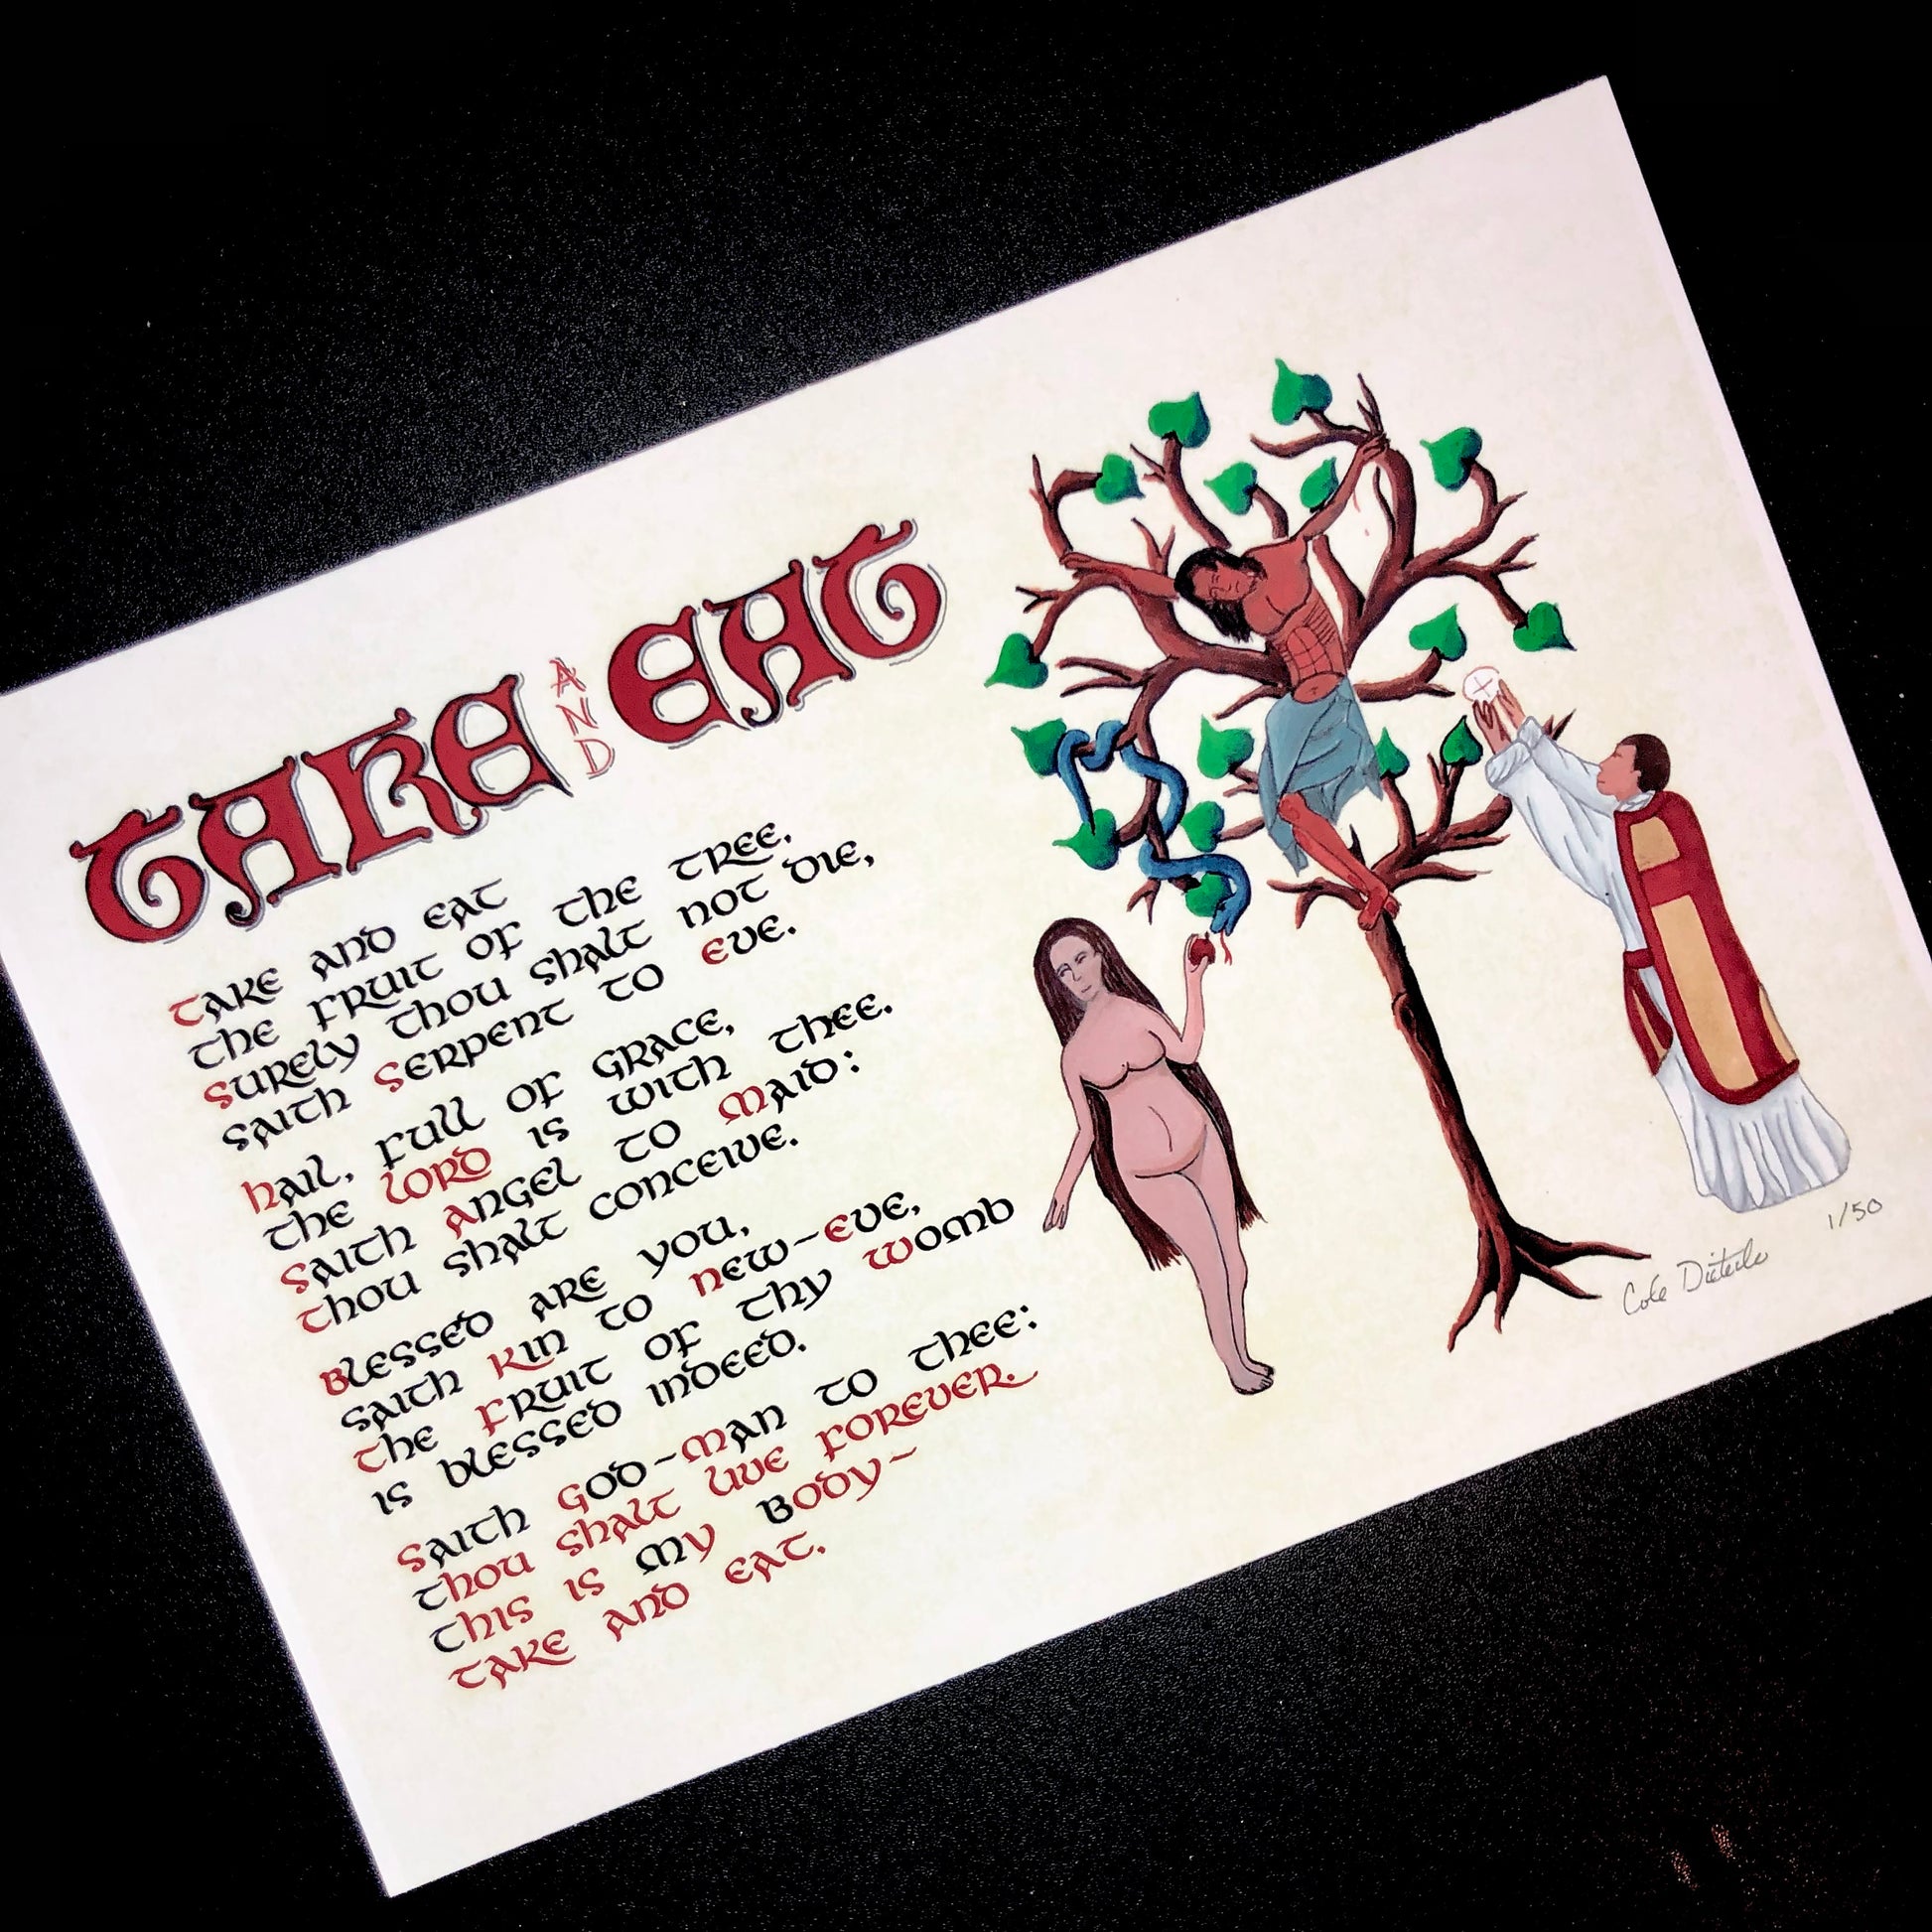 TAKE AND EAT
Take and eat
the fruit of the tree.
Surely thou shalt not die,
saith Serpent to Eve.
Hail, full of grace,
the Lord is with thee.
Saith Angel to Maid:
Thou shalt conceive.
Blessed are you,
saith Kin to New-Eve,
The Fruit of thy Womb
is blessed indeed.
Saith God-Man to thee:
Thou shalt live forever.
This is My Body-
Take and eat.
Cole Dieterle
1/50